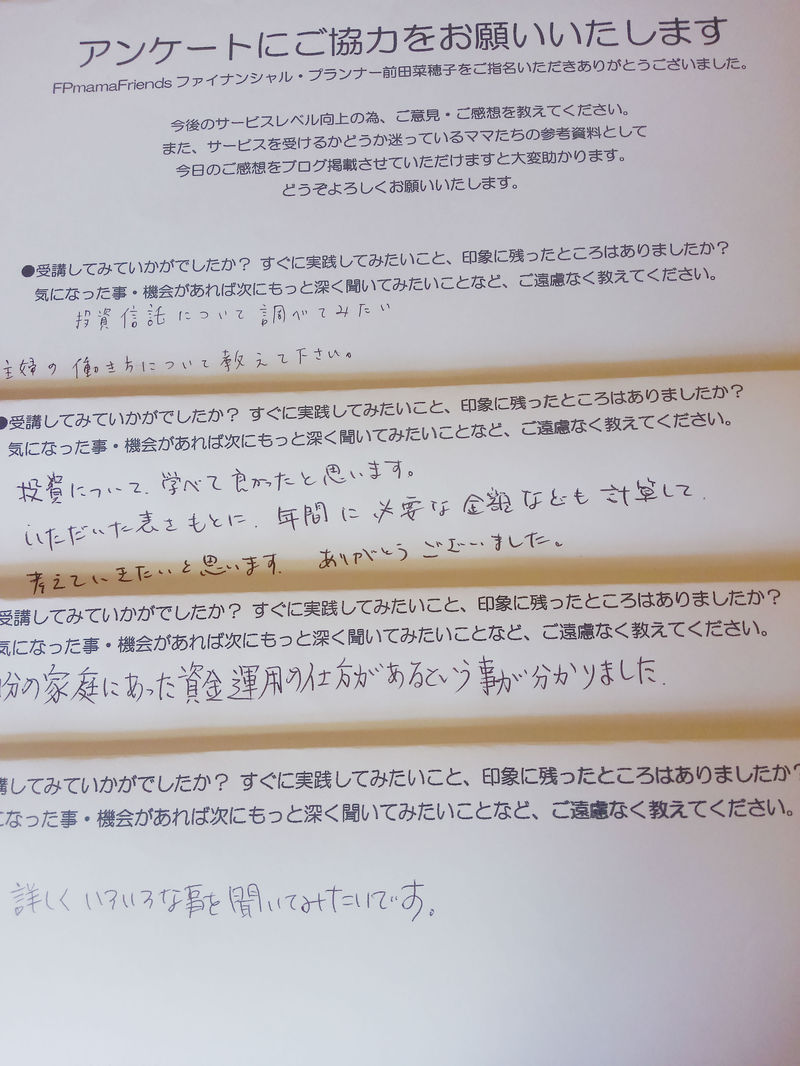 アンケートにご協力をお願いいたします
FPmamaFriends ファイナンシャル・プランナー前田菜穂子をご指名いただきありがとうございました。
今後のサービスレベル向上の為、ご意見・ご感想を教えてください。
また、サービスを受けるかどうか迷っているママたちの参考資料として
今日のご感想をブログ掲載させていただけますと大変助かります。
どうぞよろしくお願いいたします。
●受講してみていかがでしたか？ すぐに実践してみたいこと、印象に残ったところはありましたか？
気になった事・機会があれば次にもっと深く聞いてみたいことなど、ご遠慮なく教えてください。
投資信託について調べてみたい
主婦の働き方について教えて下さい。
●受講してみていかがでしたか？ すぐに実践してみたいこと、印象に残ったところはありましたか？
気になった事・機会があれば次にもっと深く聞いてみたいことなど、ご遠慮なく教えてください。
投資について、学べて良かったと思います。
いただいた表をもとに、年間に必要な金額なども計算して、
考えていきたいと思います。ありがとうございました。
受講してみていかがでしたか？ すぐに実践してみたいこと、印象に残ったところはありましたか？
気になった事・機会があれば次にもっと深く聞いてみたいことなど、ご遠慮なく教えてください。
分の家庭にあった資金運用の仕方があるという事が分かりました。
講してみていかがでしたか？ すぐに実践してみたいこと、印象に残ったところはありましたか？
になった事・機会があれば次にもっと深く聞いてみたいことなど、ご遠慮なく教えてください。
詳しくいろいろな事を聞いてみたいです。